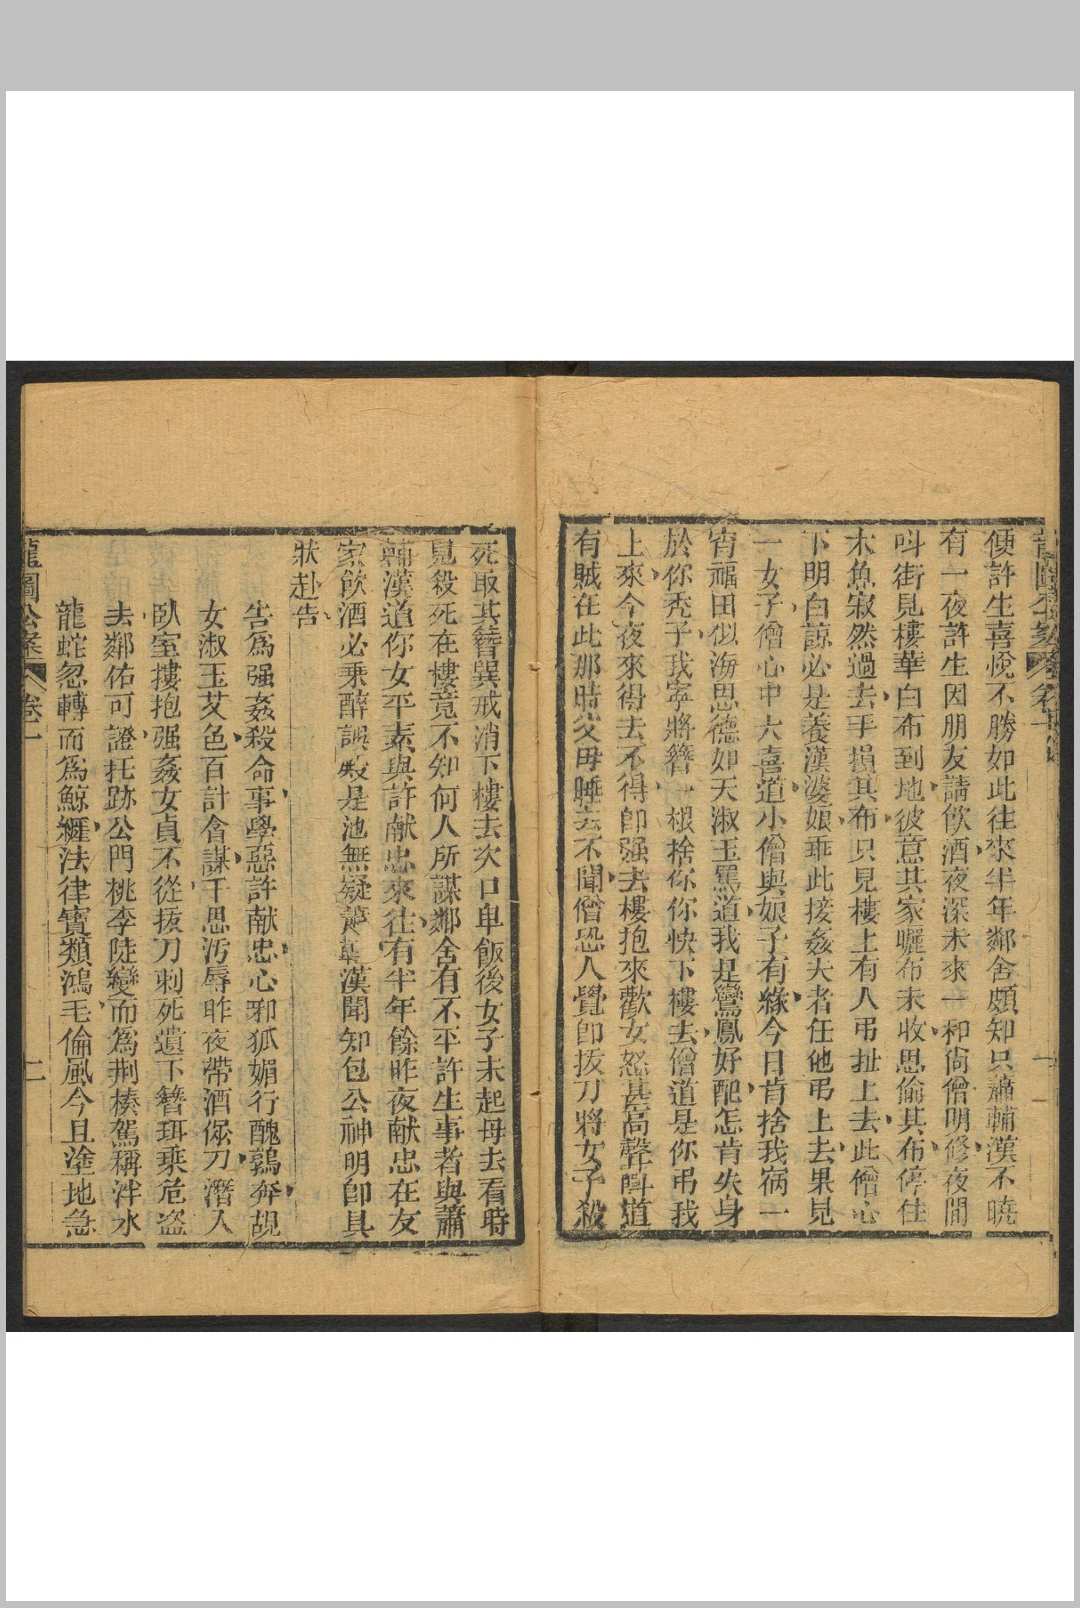 便許生喜悅不勝如此往來半年鄰舍頗知只蕭輔漢不曉
有一夜許生因朋友請飲酒夜深未來一和尚僧明修夜間
叫街見樓華白布到地彼意其家曬布未收思偷其布停住
木魚寂然過去手損其布只見樓上有人弔扯上去此僧心
下明白諒必是養漢婆娘乖此接姦夫者任他弔上去果見
一女子僧心中大喜道小僧與娘子有緣今日肯捨我宿一
宵福田似海思德如天淑玉罵道我是鸞鳳好配怎肯失身
於你禿子我寧將簪一根捨你你快下樓去僧道是你弔我
上來今夜來得去不得卽强去樓抱來歡女怒甚高聲呌道
有賊在此那時父母睡去不聞僧恐人覺卽拔刀將女子殺
死取其簪巽戒消下樓去次口早飯後女子未起母去看時
見殺死在樓竟不知何人所謀鄰舍有不平許生事者與蕭
輔漢道你女平素與許献忠來往有半年餘昨夜献忠在友
家飲酒必乘醉誤殺是池無疑蕭輔漢聞知包公神明卽具
狀赴告
告為强姦殺命事學惡許献忠心邪狐媚行醜鶉奔覘
女淑玉艾色百計會謀千思汚辱昨夜帶酒佩刀潛入
臥室摟抱强姦女貞不從拔刀刺死遺下簪珥乘危盜
去鄰佑可證托跡公門桃李陡變而為荆榛駕稱泮水
龍蛇忽轉而為鯨鱷法律實類鴻毛倫風今且塗地急
龍圖公案 卷一 七